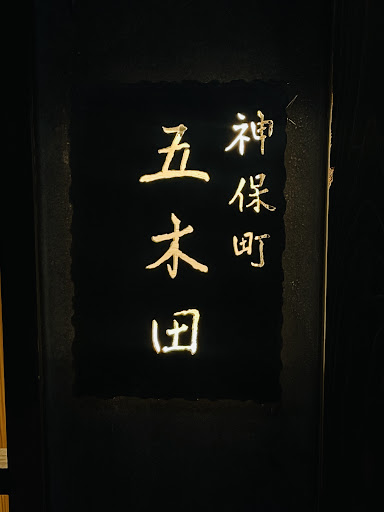 神保町
五木田